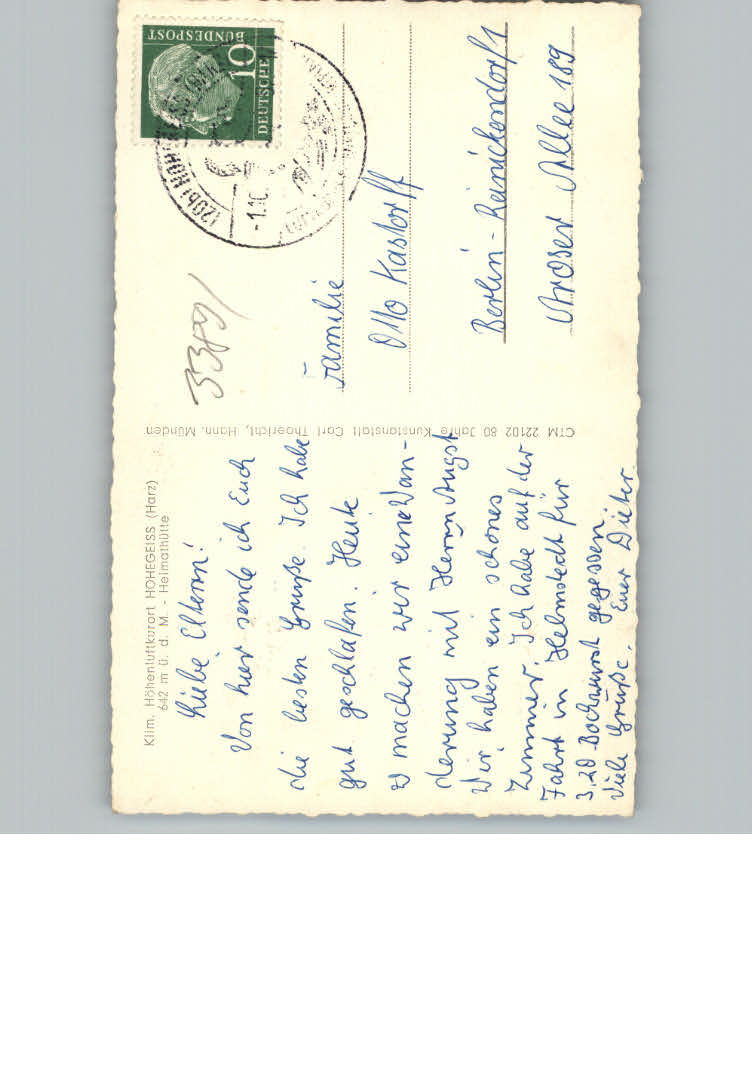 Klim. Höhenluftkurort HOHEGEISS (Harz)
642 m ü. d. M. - Heimathütte
Liebe Eltern!
Von hier sende ich Euch
die besten Grüße. Ich habe
gut geschlafen. Heute
machen wir eine Wan-
derung mit Herrn Angst
Wir haben ein schönes
Zimmer. Ich habe auf der
Fahrt in Helmstedt für
3,20 Bockwurst gegessen
Viele Grüße, Euer Dieter.
CTM 22102 80 Jahre Kunstanstalt Carl Thoericht, Hann. Münden
3389/
DEUTSCHE
10
BUNDESPOST
(20b) HOHEGEISS
-1.10
Familie
Otto Kastorff
Berlin-Reinickendorf 1
Aroser Allee 189